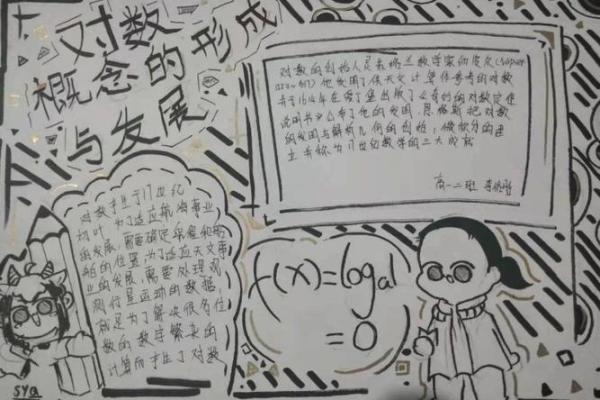 对数
概念的形成
与发展
对数的创始人是苏格兰数学家纳皮尔(Napier
1550年). 他发明了供天文计算作参考的对数
并于1614年在爱丁堡出版了《奇妙的对数定律
说明书》公布了他的发明. 恩格斯把对数
的发明与解析几何的创始, 微积分的建
立并称为17世纪数学的三大成就
高一二班
对数产生于17世纪
初叶, 为了适应航海事业
的发展, 需要确定航程和船
舶的位置, 为了适应天文事
业的发展, 需要处理观
测行星运动的数据
就是为了解决很多位
数的数字繁杂的
计算而产生了对数
f(x)=logₐ1
=0
SYQ